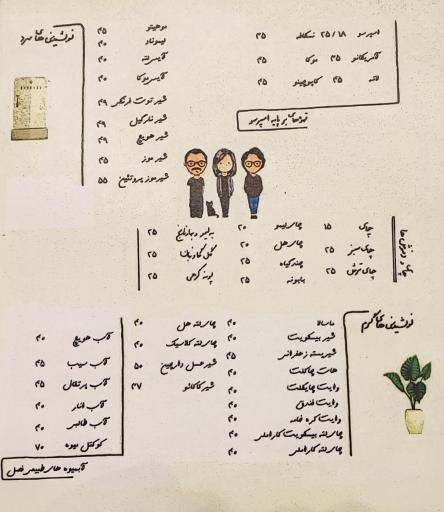 نوشیدنی های سرد
موهیتو ۴۵
لیموناد ۴۰
آیس لته ۴۰
آیس موکا ۴۰
شیر توت فرنگی ۴۹
شیر نارگیل ۴۹
شیر هویج ۴۹
شیر موز ۴۵
شیر موز پروتئین ۵۵
اسپرسو ۲۵/۱۸ نسکافه ۳۵
آمریکانو ۳۵ موکا ۴۵
لاته ۳۵ کاپوچینو ۴۵
قهوه های بر پایه اسپرسو
چای و دمنوش ها
چای ۱۵ چای لیمو ۲۰ به لیمو و بهارنارنج ۲۵
چای سبز ۲۵ چای هل ۲۰ گل گاوزبان ۲۵
چای ترش ۲۵ چندگیاه ۲۵ پونه کوهی ۲۵
بابونه ۲۵
نوشیدنی های گرم
ماسالا ۴۰
شیر بیسکویت ۴۰
شیر پسته زعفرانی ۴۵
هات چاکلت ۴۰
وایت چاکلت ۴۰
وایت فندق ۴۰
وایت کره
چای لته بیسکویت کاراملی ۴۰
چای لته کاراملی ۴۰
چای لته هل ۴۰
چای لته کلاسیک ۴۰
شیر عسل دارچین ۵۰
شیر کاکائو ۳۷
آب هویج ۴۰
آب سیب ۴۵
آب پرتقال ۴۵
آب انار ۴۰
آب طالبی ۴۰
کوکتل میوه ۷۰
آبمیوه های طبیعی فصل